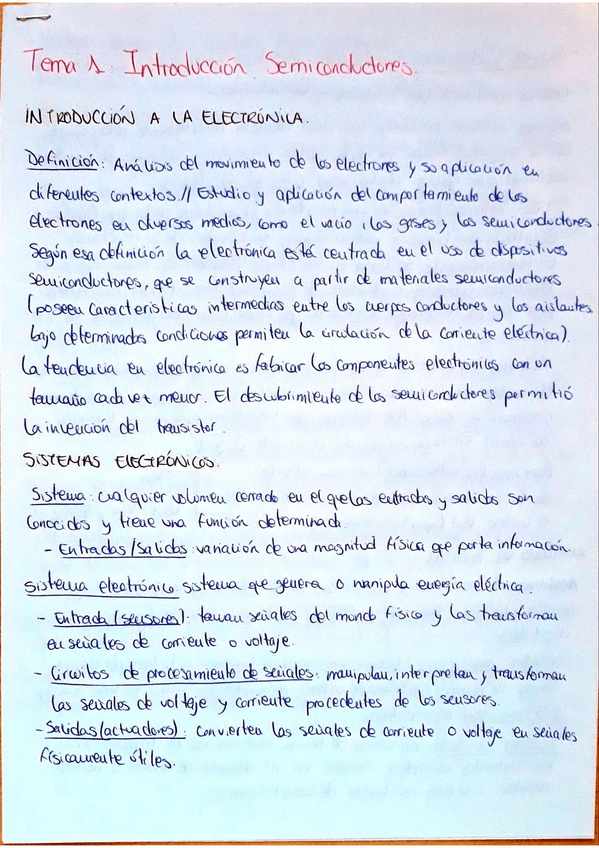 Tema 1: Introducción. Semiconductores.
INTRODUCCIÓN A LA ELECTRÓNICA.
Definición: Análisis del movimiento de los electrones y so aplicación en
diferentes contextos.// Estudio y aplicación del comportamiento de los
electrones en diversos medios, como el vacio, los gases y los semiconductores.
Según esa definición la electrónica está centrada en el uso de dispositivos
semiconductores, que se construyen a partir de materiales semiconductores
(poseen características intermedias entre los cuerpos conductores y los aislantes
bajo determinadas condiciones permiten la circulación de la corriente eléctrica).
La tendencia en electrónica es fabricar los componentes electrónicos con un
tamaño cada vez menor. El descubrimiento de los semiconductores permitió
la invención del transistor.
SISTEMAS ELECTRÓNICOS.
Sistema: cualquier volumen cerrado en el que las entradas y salidas son
conocidas y tiene una función determinada.
- Entradas/Salidas: variación de una magnitud física que porta información.
Sistema electrónico: sistema que genera o manipula energía eléctrica.
- Entrada (sensores): toman señales del mundo físico y las transforman
en señales de corriente o voltaje.
- Circuitos de procesamiento de señales: manipulan, interpretan y transforman
las señales de voltaje y corriente procedentes de los sensores.
- Salidas (actuadores): convierten las señales de corriente o voltaje en señales
físicamente útiles.